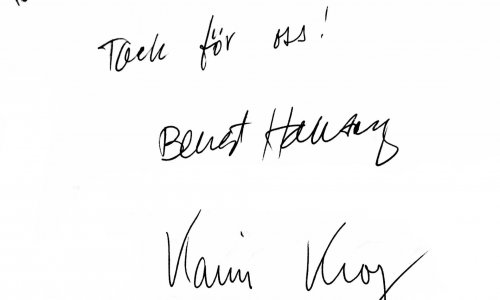 Tack för oss!
Bengt Hallberg
Karin Krog